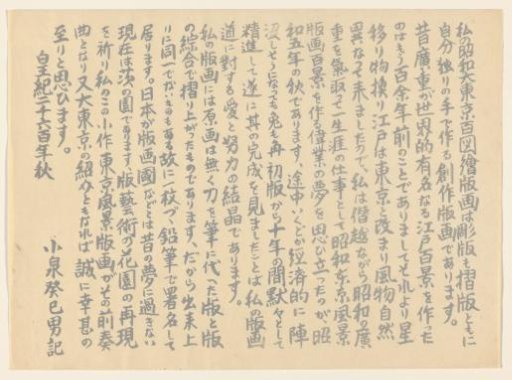 私の昭和大東京百図繪版画は彫版も摺版ともに
自分独りの手で作る創作版画であります。
昔廣重が世界的有名なる江戸百景を作った
のはもう百余年前のことでありましてそれより星
移り物換り江戸は東京と改まり風物自然
異なって来ましたので私は僭越ながら昭和の廣
重を氣取って一生涯の仕事として昭和東京風景
版画百景を作る偉業の夢を思ひ立ったのが昭
和五年の秋であります、途中いくどか経済的に陣
没しそうになっても兎も再初版から十年の間黙々として
精進して遂に其の完成を見ましたことは私の版画
道に対する愛と努力の結晶であります。
私の版画には原画は無く刀を筆に代へた版と版
の綜合で摺り上がったものであります、だから出来上
りに同一でないものもある故に一枚づゝ鉛筆で署名して
居ります。日本が版画國などとは昔の夢に過ぎない
現在は涙の園であります、版藝術の花園の再現
を祈り私のこの小作「東京風景版画」がその前奏
曲となり又大東京の紹介ともなれば誠に幸甚の
至りと思ひます。
皇紀二千六百年秋
小泉癸巳男記